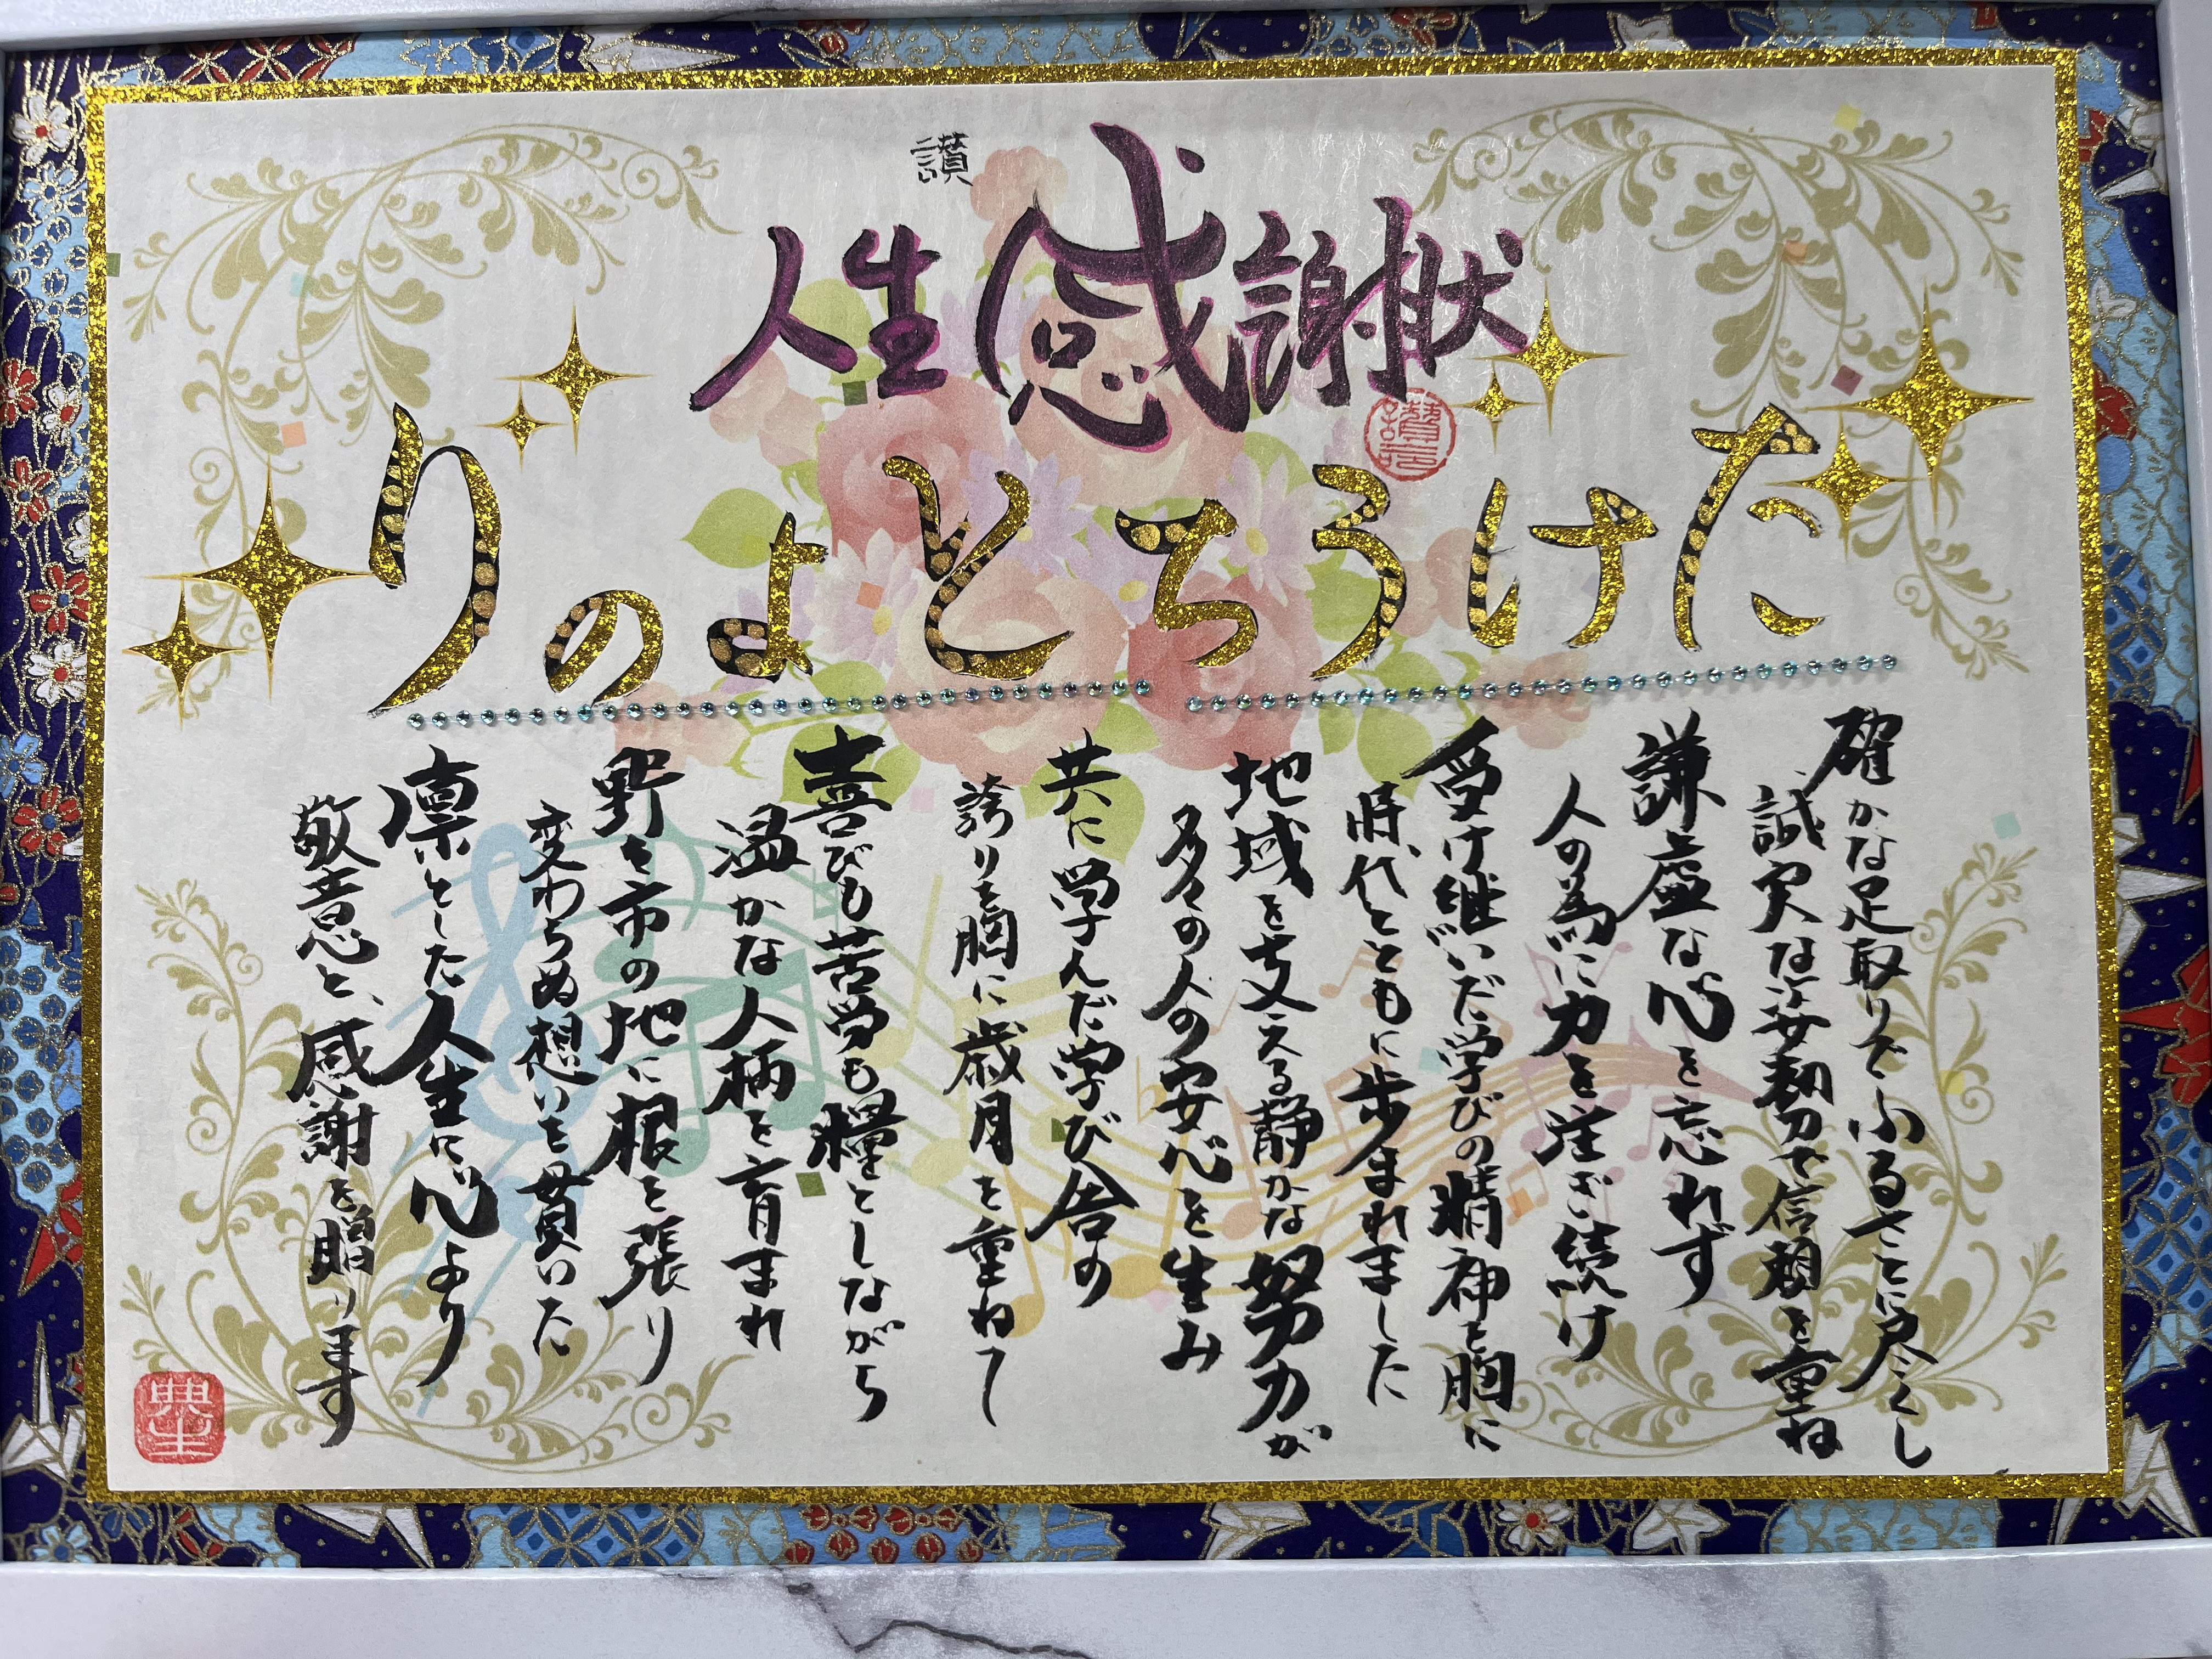 讃
人生感謝状
たけうちとよのり
確かな足取りでふるさとに尽くし
誠実な姿勢で信頼を重ね
謙虚な心を忘れず
人の為に力を注ぎ続け
受け継いだ学びの精神を胸に
時代とともに歩まれました
地域を支える静かな努力が
多くの人の安心を生み
共に学んだ学び舎の
誇りを胸に歳月を重ねて
喜びも苦労も糧としながら
温かな人柄を育まれ
野々市の地に根を張り
変わらぬ想いを貫いた
凛とした人生に心より
敬意と、感謝を贈ります